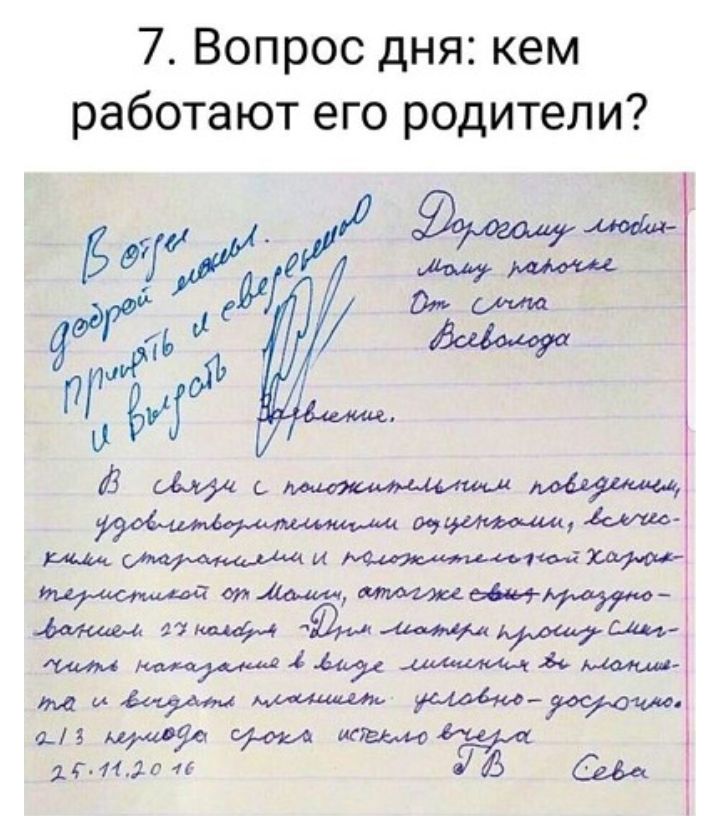 7. Вопрос дня: кем
работают его родители?
В отдел
доброй мамы.
принять к сведению
и выдать
Дорогому люби-
мому папочке
От сына
Всеволода
Заявление.
В связи с положительным поведением,
удовлетворительными оценками, всячес-
кими стараниями и положительной харак-
теристикой от Мамы, а также празднo-
ванием 27 ноября "Дня матери прошу смяг-
чить наказание в виде лишения планше-
та и выдать планшет условно-досрочно.
2/3 периода срока истекло вчера
25.11.2016 ГВ Сева